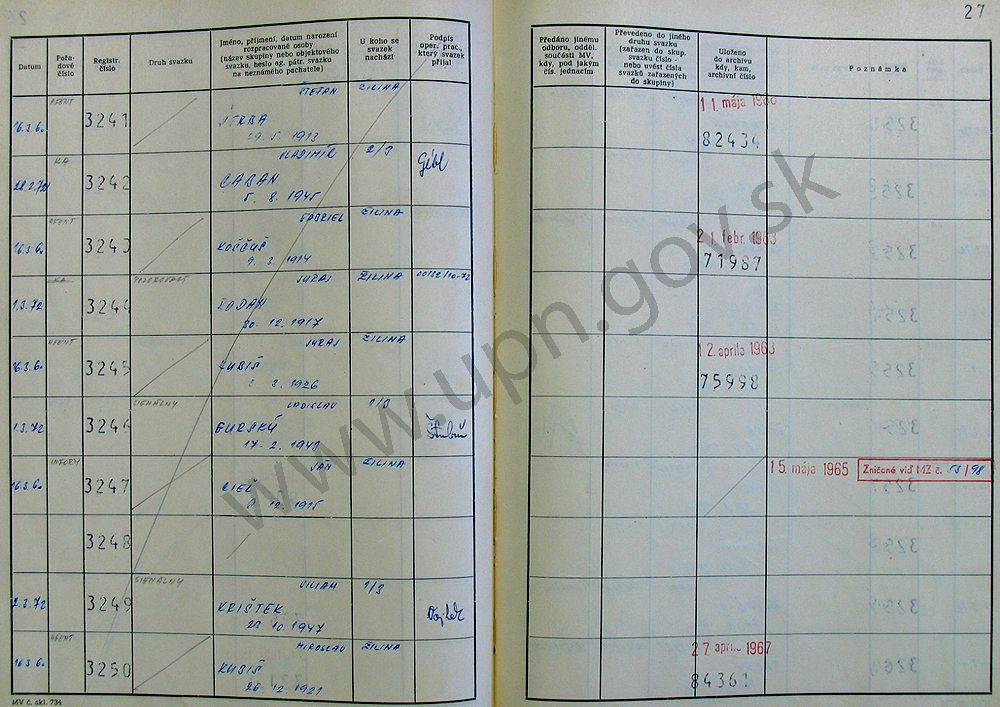 27
Datum
Pořadové číslo
Registr. číslo
Druh svazku
Jméno, příjmení, datum narození rozpracované osoby (název skupiny nebo objektového svazku, heslo ag. pátr. svazku na neznámého pachatele)
U koho se svazek nachází
Podpis oper. prac., který svazek přijal
Předáno jinému odboru, odděl. součásti MV, kdy, pod jakým čís. jednacím
Převedeno do jiného druhu svazku (zařazen do skup. svazku číslo - nebo uvést čísla svazků zařazených do skupiny)
Uloženo do archivu kdy, kam, archivní číslo
Poznámka
AGENT ŠTEFAN ŽILINA
16.3.60 3241 ŠTRBA 11. mája 1966
29. 5. 1913 82434
KA VLADIMÍR 2/3
28.2.72 3242 CABAN
5. 8. 1945
AGENT GABRIEL ŽILINA
16.3.60 3243 21. febr. 1963
9. 3. 1914 71987
KA JURAJ ŽILINA
1.3.72 3244
20. 12. 1917
AGENT JURAJ ŽILINA
16.3.60 3245 12. apríla 1963
1926 75998
SIGNÁLNY LADISLAV 1/3
1.3.72 3246 GURSKÝ
17. 2. 1949
INFORM JÁN ŽILINA
16.3.60 3247 15. mája 1965 Zničené viď MZ č. 53/98
12. 1915
3248
SIGNÁLNY VILIAM 1/3
2.3.72 3249 KRIŠTEK
23. 10. 1947
AGENT MIROSLAV ŽILINA
16.3.60 3250 KUBIŠ 27. apríla 1967
26. 12. 1921 84361
MV č. skl. 734
www.upn.gov.sk